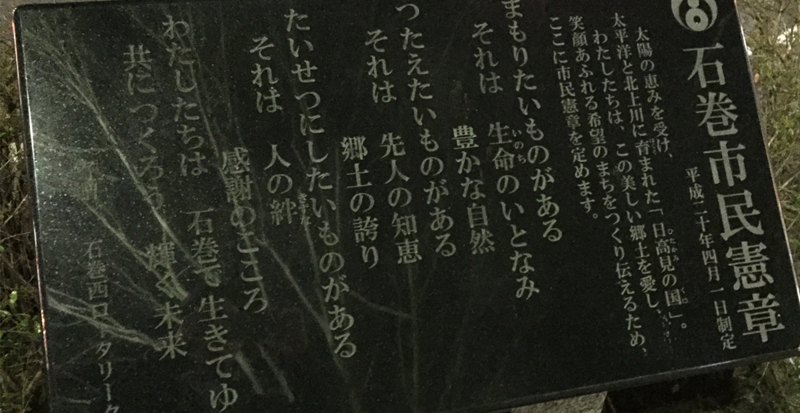 石巻市民憲章
平成二十年四月一日制定
太陽の恵みを受け、
太平洋と北上川に育まれた「日高見の国」。
わたしたちは、この美しい郷土を愛し、
笑顔あふれる希望のまちをつくり伝えるため、
ここに市民憲章を定めます。
まもりたいものがある
それは 生命のいとなみ
豊かな自然
つたえたいものがある
それは 先人の知恵
郷土の誇り
たいせつにしたいものがある
それは 人の絆
感謝のこころ
わたしたちは 石巻で生きてゆ
共につくろう 輝く未来
石巻西ロータリーク